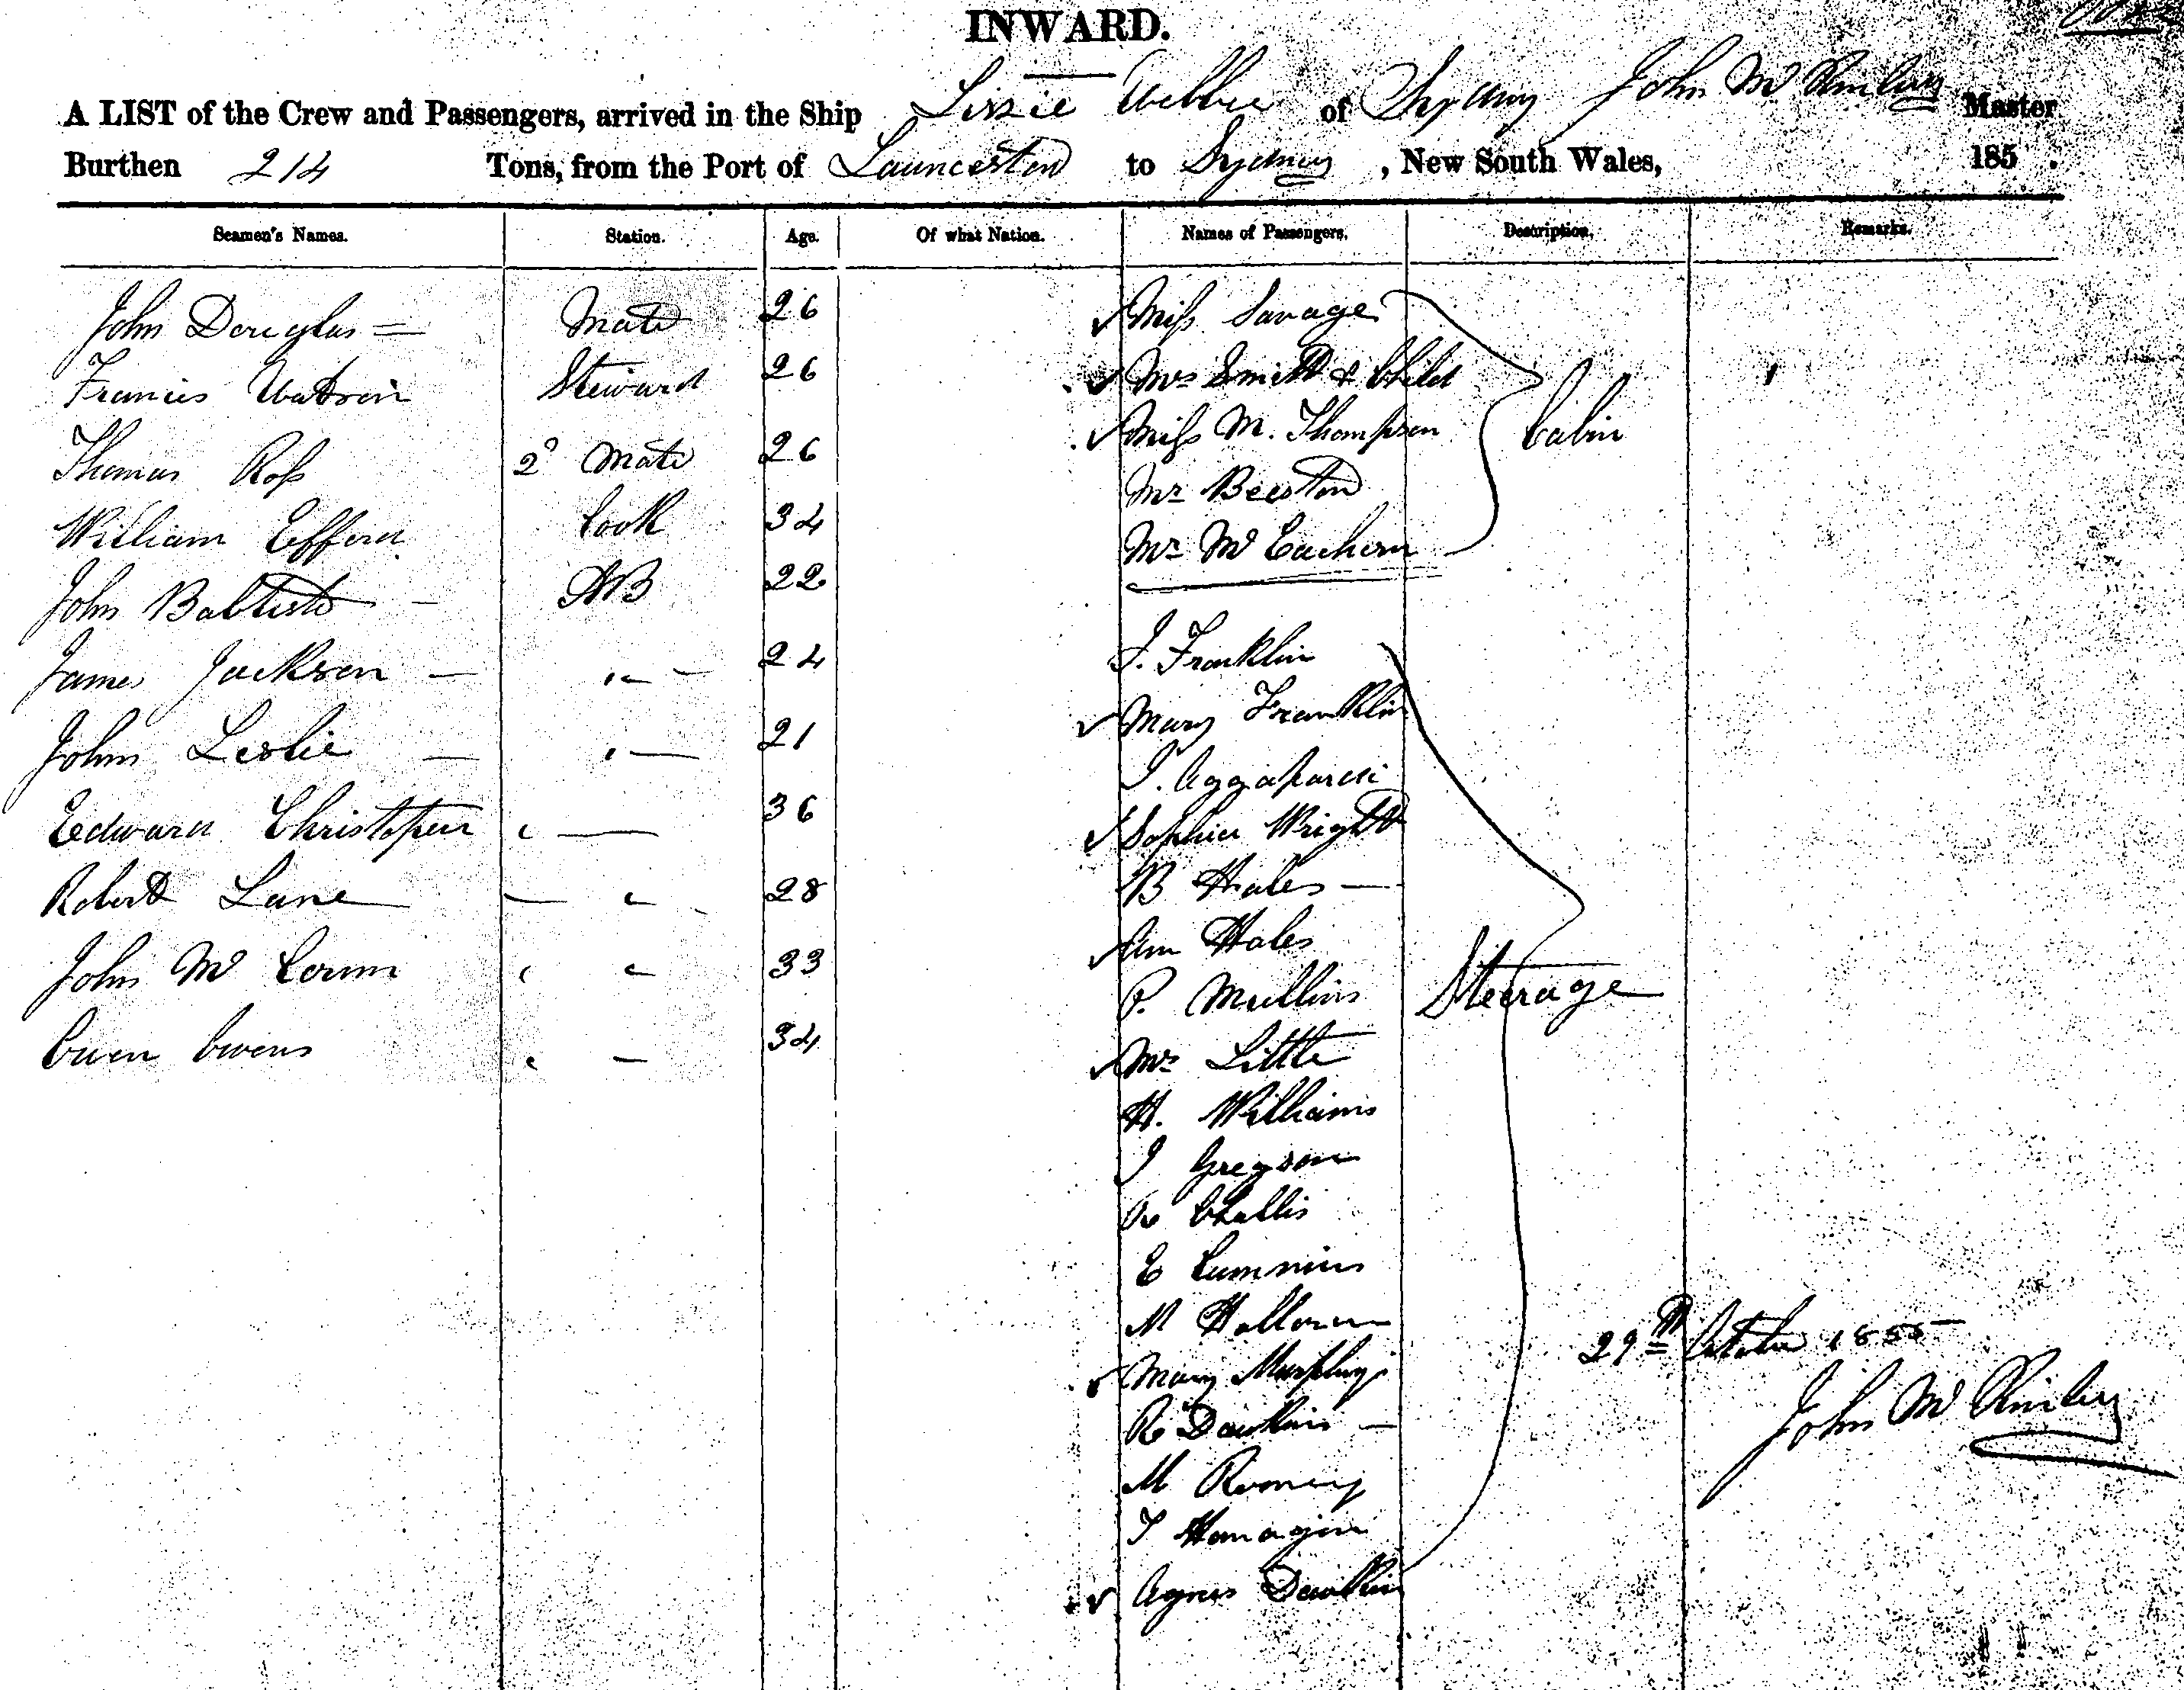 INWARD.
A LIST of the Crew and Passengers, arrived in the Ship Lizzie Webber of Sydney John Mc Kinlay Master
Burthen 214 Tons, from the Port of Launceston to Sydney, New South Wales, 185 .
Seamen's Names. Station. Age. Of what Nation. Names of Passengers. Description. Remarks.
John Douglas Mate 26
Francis Watson Steward 26
Thomas Ross 2d Mate 26
William Efford Cook 34
John Babtiste AB 22
James Jackson " 24
John Leslie " 21
Edward Christopher " 36
Robert Lane " 28
John Mc 33
Owen Owens " 34
Miss Savage
Mrs Smith & Child
Miss M. Thompson
Mr Beeston
Mr Mc Eachern
Cabin
J. Franklin
Mary Franklin
J.
Sophia Wright
B Hales
Ann Hales
P. Mullins
Mrs Little
H. Williams
J Gregson
R Challis
E Cummins
M Halloran
Mary Murphy
R Dawkins
M Rooney
T
Agnes Dawkins
Steerage
29th October 1855
John Mc Kinlay